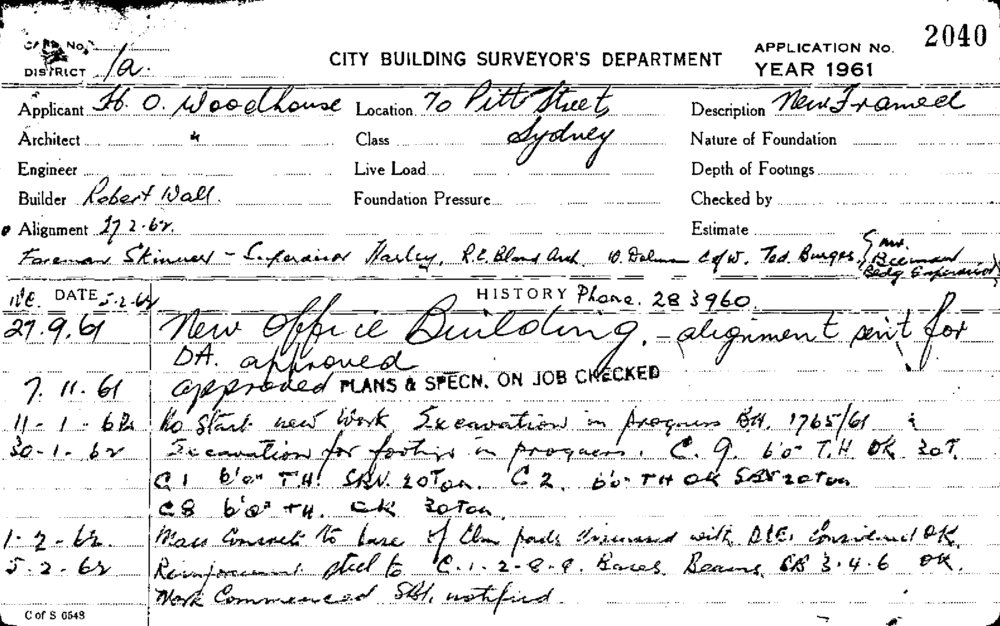 CARD No.
DISTRICT 1a.
CITY BUILDING SURVEYOR'S DEPARTMENT
APPLICATION No. 2040
YEAR 1961
Applicant H. O. Woodhouse Location 70 Pitt Street, Description New Framed
Architect " Class Sydney Nature of Foundation
Engineer Live Load Depth of Footings
Builder Robert Wall. Foundation Pressure Checked by
Alignment 27 2.62. Estimate
Foreman Skinner - Supervisor Harley, R.E. Bland Arch. W. C of W. Ted. Burges, Mr.
Bldg Supervisor
DATE 5-2-62 HISTORY Phone. 28 3960.
27.9.61 New Office Building. - alignment sent for
DA. approved
7.11.61 approved PLANS & SPECN. ON JOB CHECKED
11-1-62 No Start new work, Excavation in progress BA. 1765/61
30-1-62 Excavation for footings in progress. C.9. 6'0" T.H OK 30T.
C1 6'0" T.H. 20Ton. C2. 6'0" TH OK 20Ton
C8 6'0" TH. OK 30Ton.
1-2-62 Mass Concrete to base of Clmn pads discussed with considered OK.
5-2-62 Reinforcement steel to C.1-2-8-9. Bases Beams 3.4.6 OK.
Work Commenced notified.
C of S 6548